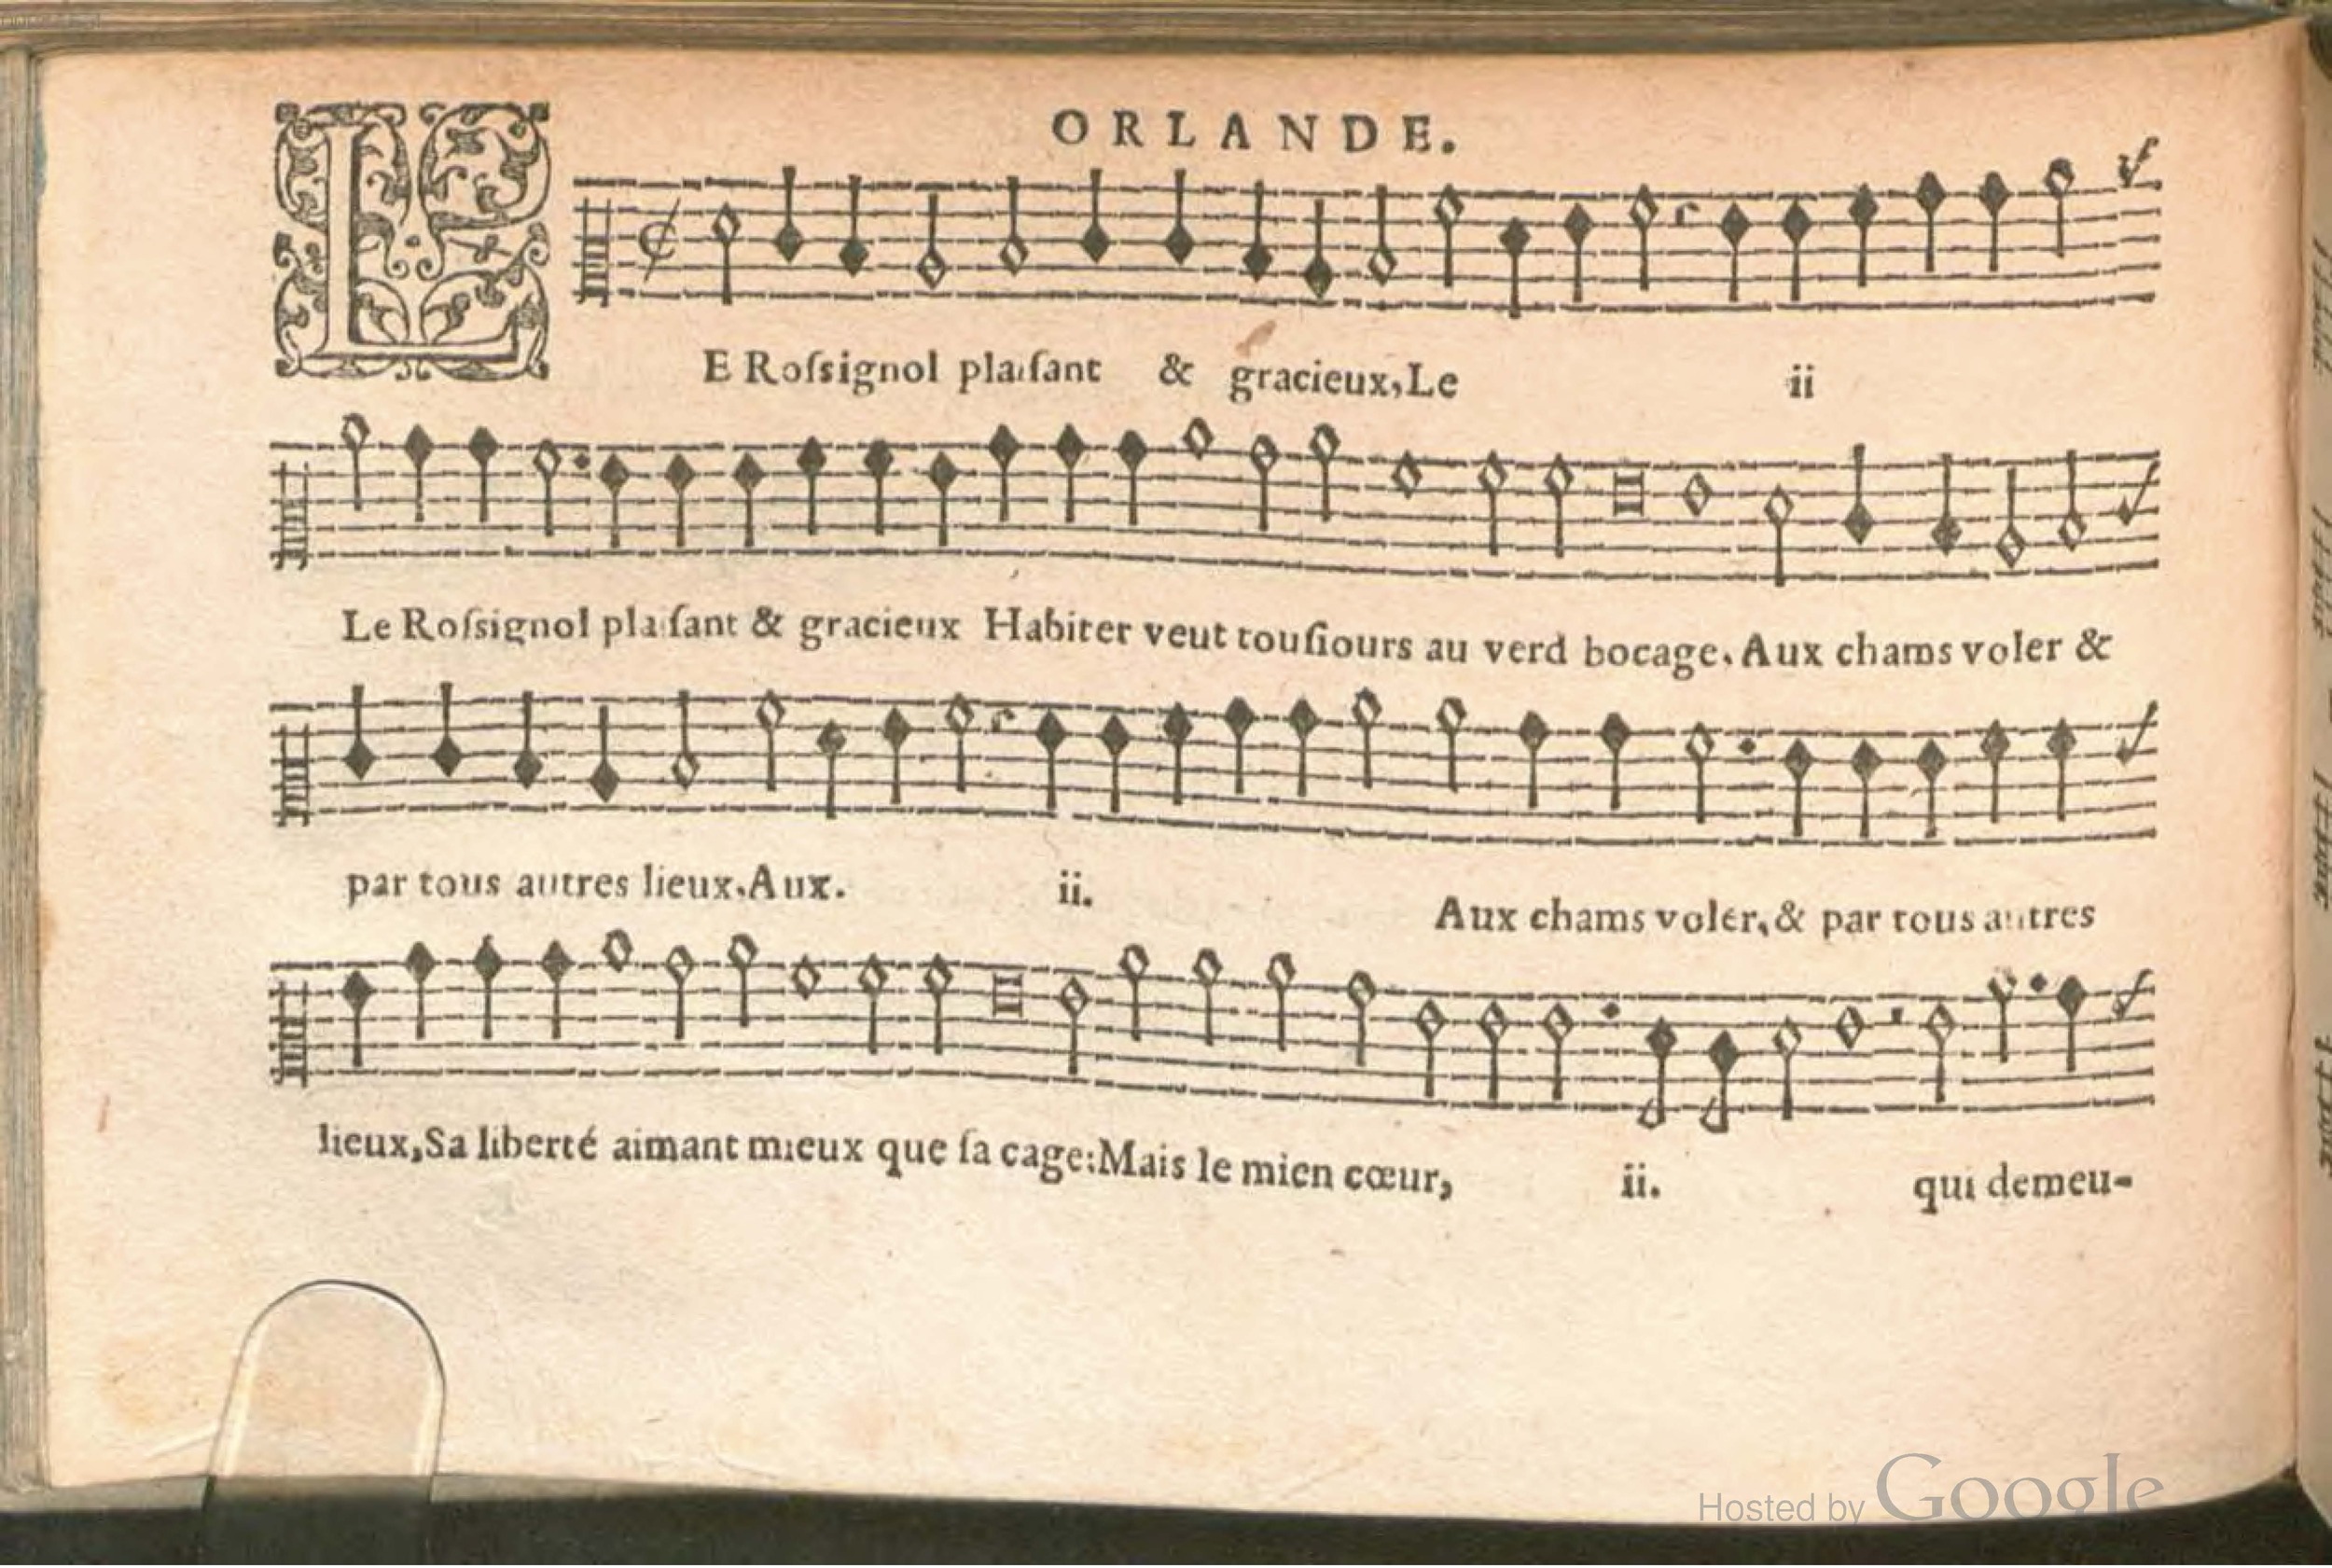 ORLANDE.
LE Roſsignol plaiſant & gracieux, Le ii
Le Roſsignol plaiſant & gracieux Habiter veut touſiours au verd bocage. Aux chams voler &
par tous autres lieux. Aux. ii. Aux chams voler, & par tous autres
lieux, Sa liberté aimant mieux que ſa cage: Mais le mien cœur, ii. qui demeu-
Hosted by Google